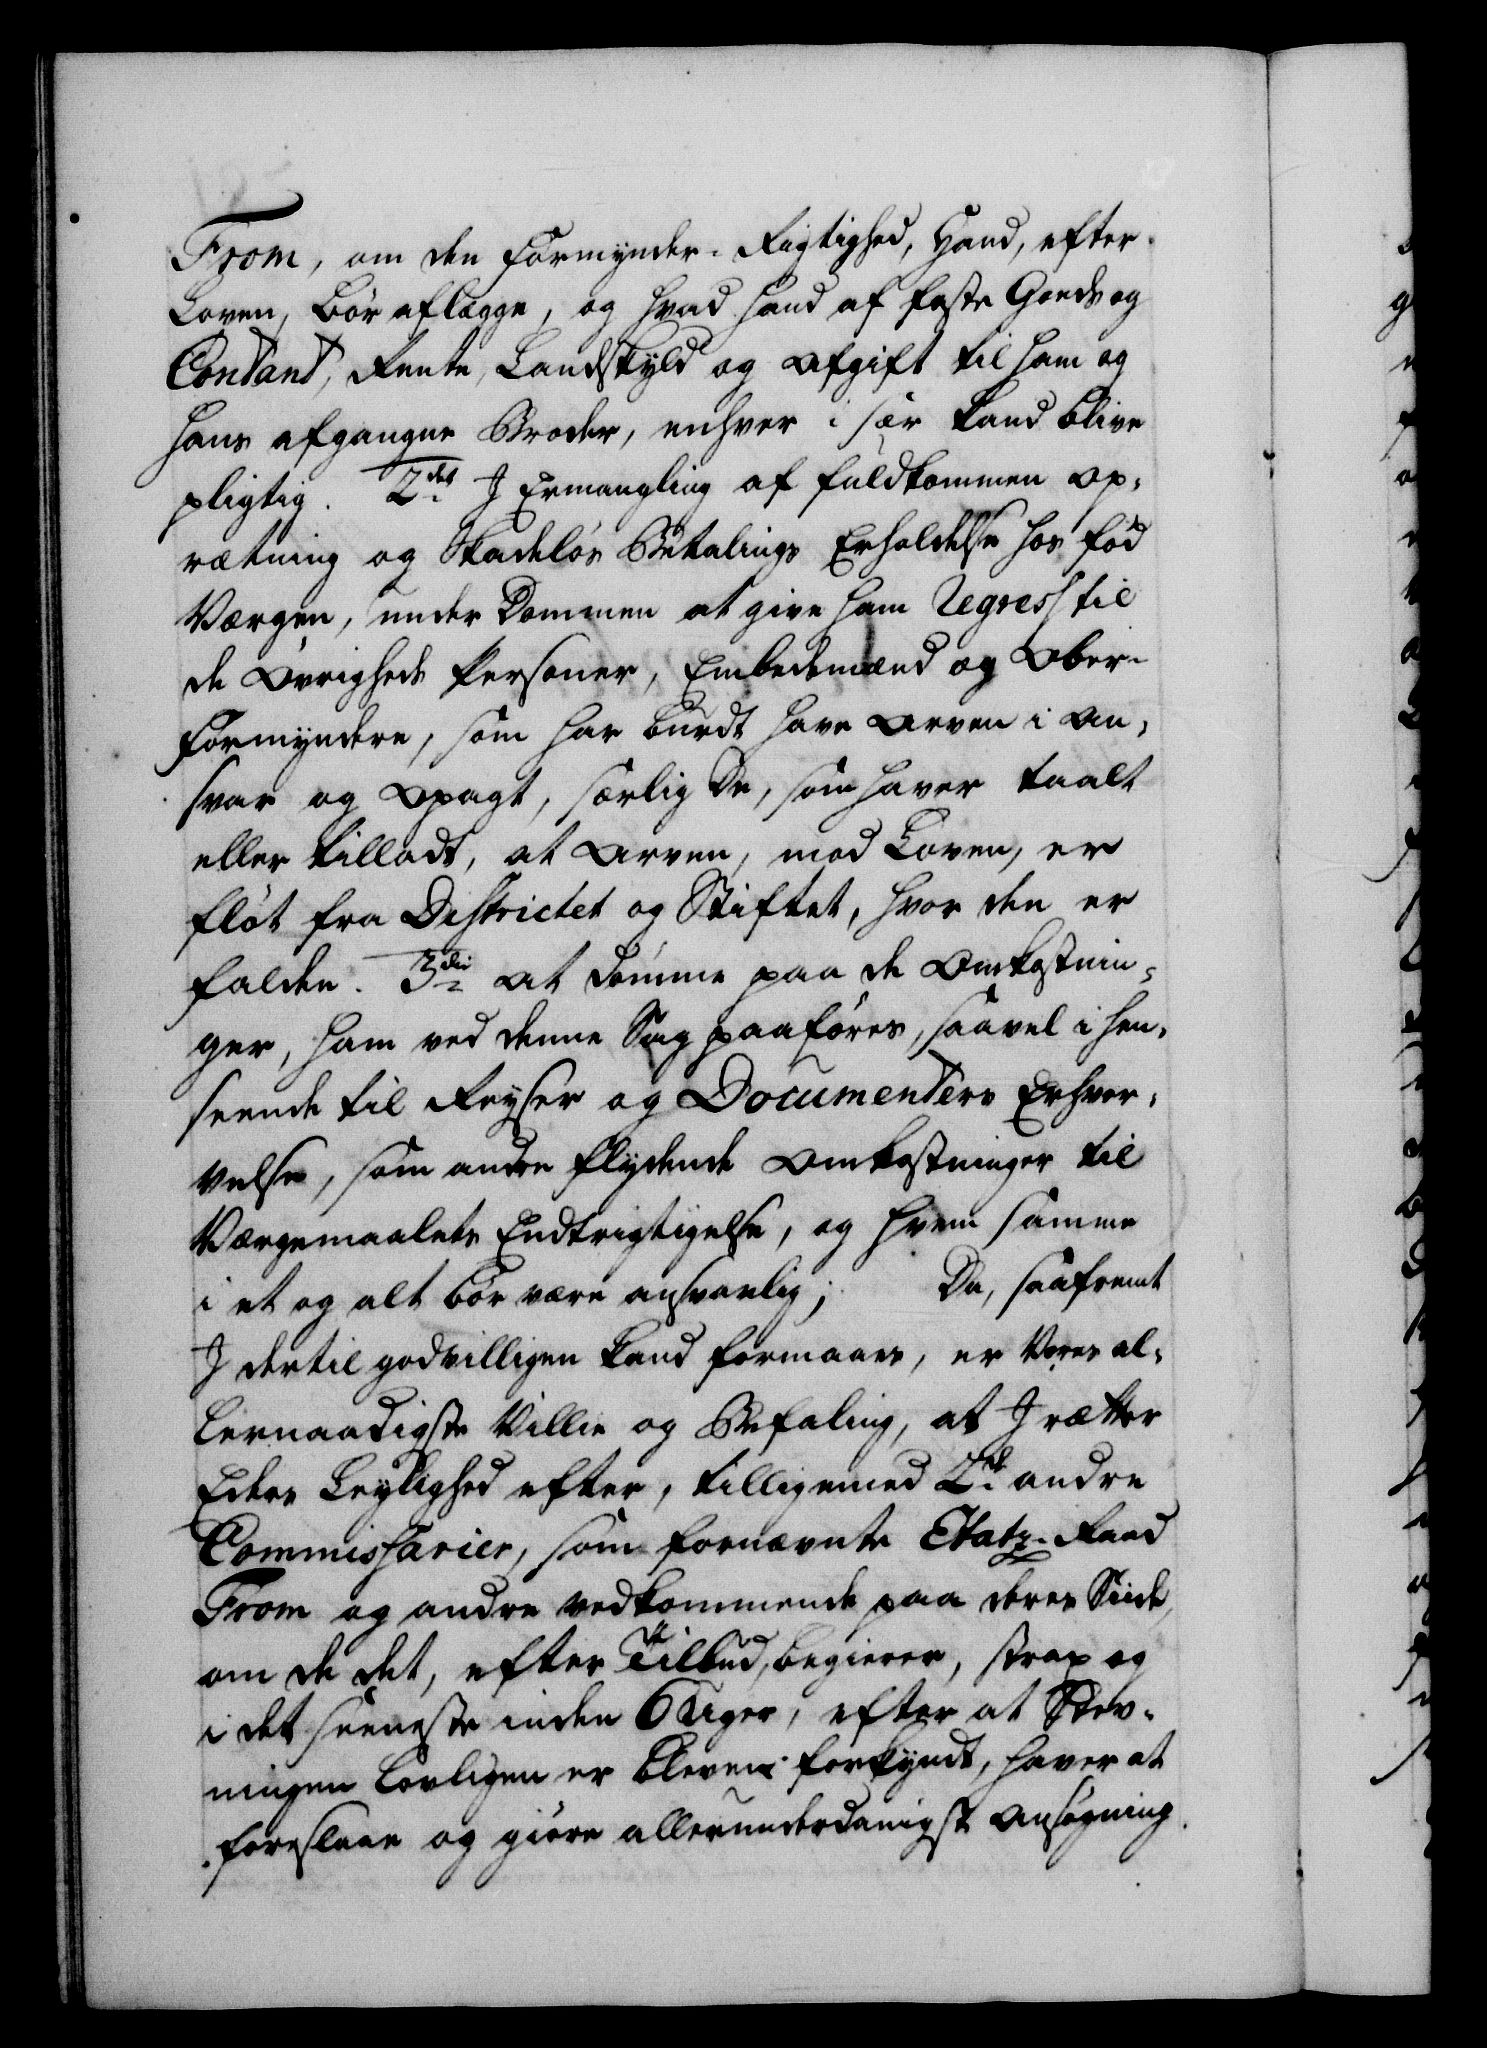 From, om den Formynder-Rigtighed, Hand, efter
Loven, bør aflægge, og hvad hand af faste Goeds og
Contant, Rente, Landskyld og Afgift til ham og
hans afgangne Broder, enhver i sær kand blive
pligtig. 2det J Ermangling af fuldkommen Op-
rætning og skadesløs Betalings Erholdelse hos fød
Værgen, under Dommen at give ham Regress til
de Øvrigheds Personer, Embedsmænd og Ober-
formyndere, som har burdt have Arven i An-
svar og Opagt, særlig De, som haver taalt
eller tilladt, at Arven, mod Loven, er
fløt fra Districtet og Stiftet, hvor den er
falden. 3die At dømme paa de Omkostnin-
ger, ham ved denne Sag paaføres, saavel i hen-
seende til Reyser og Documenters Erhver-
velse, som andre flydende Omkostninger til
Værgemaalets Endtrigtigelse, og hvem samme
i et og alt bør være ansvarlig; Da, saafremt
J dertil godvilligen kand formaaes, er Vores al-
lernaadigste Villie og Befaling, at J rætter
Eders Leylighed efter, tilligemed 2de andre
Commissarier, som fornævnte Etatz-Raad
From og andre vedkommende paa deres Siide,
om de det, efter Tilbud, begierer, strax og
i det seeneste inden 6 Uger, efter at Stev-
ningen lovligen er bleven forkyndt, haver at
foreslaae og giøre allerunderdanigst Ansøgning